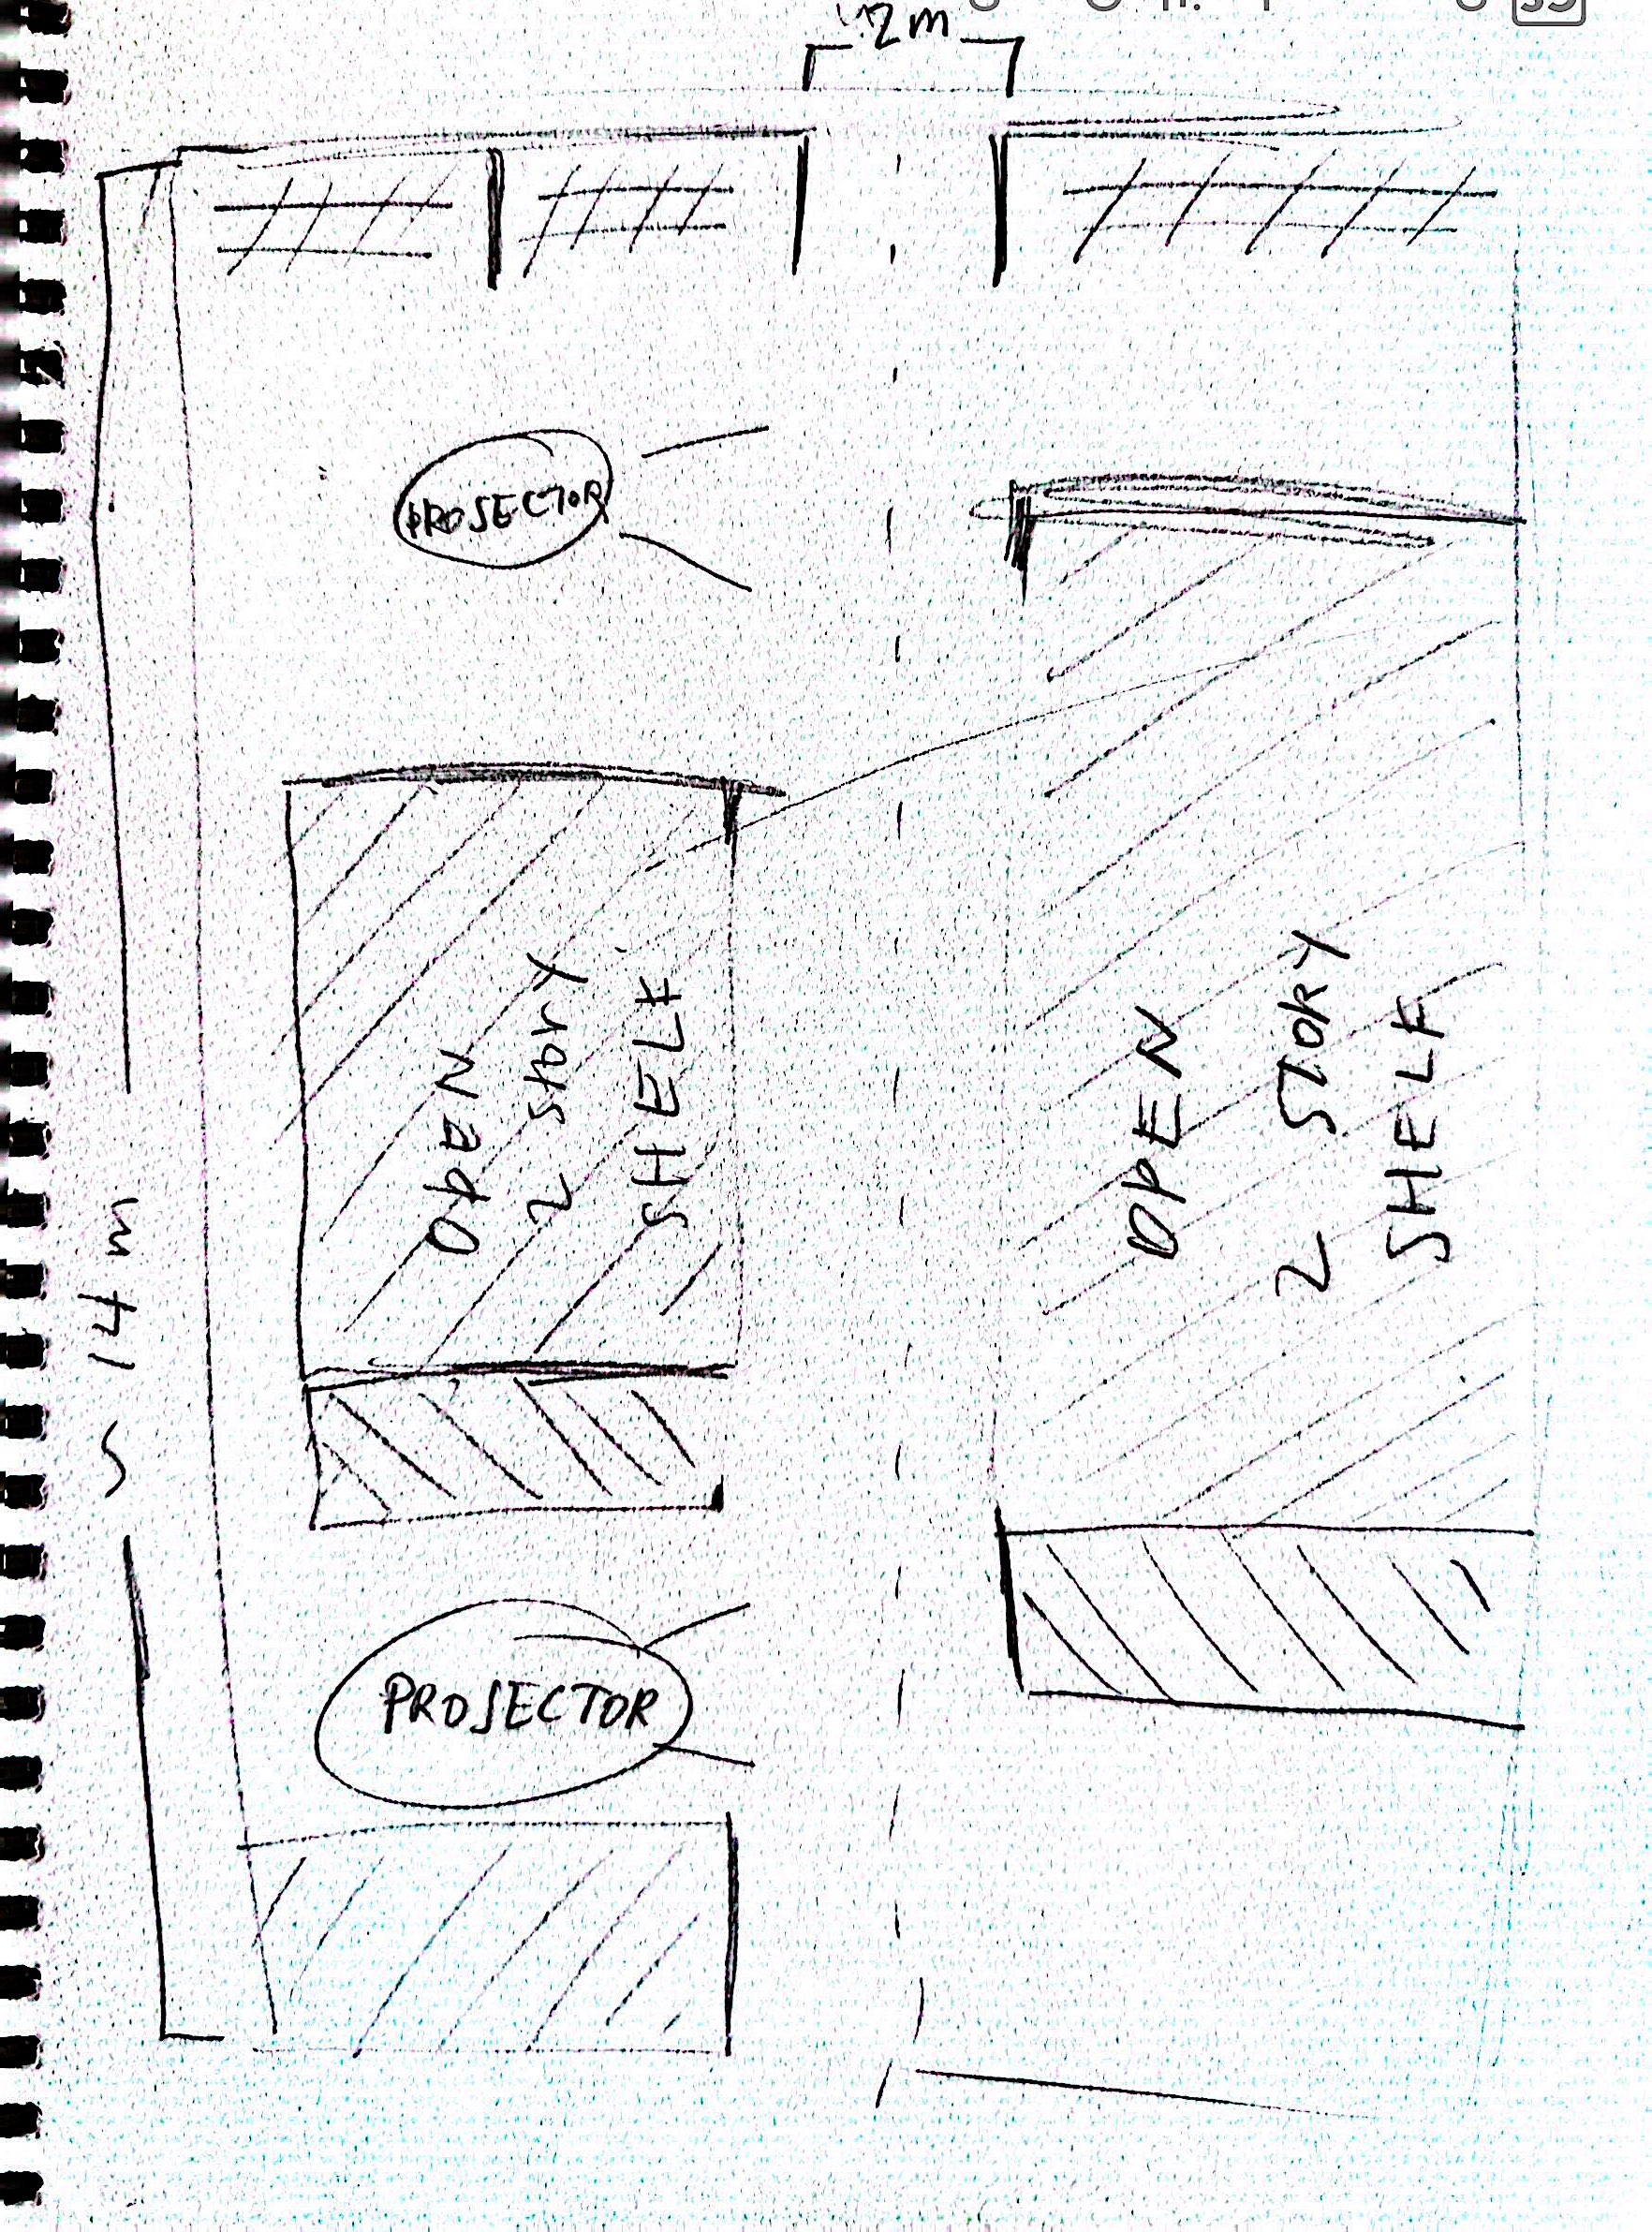 2m
PROJECTOR
OPEN
2 story
SHELF
OPEN
2 STORY
SHELF
~ 14 m
PROJECTOR